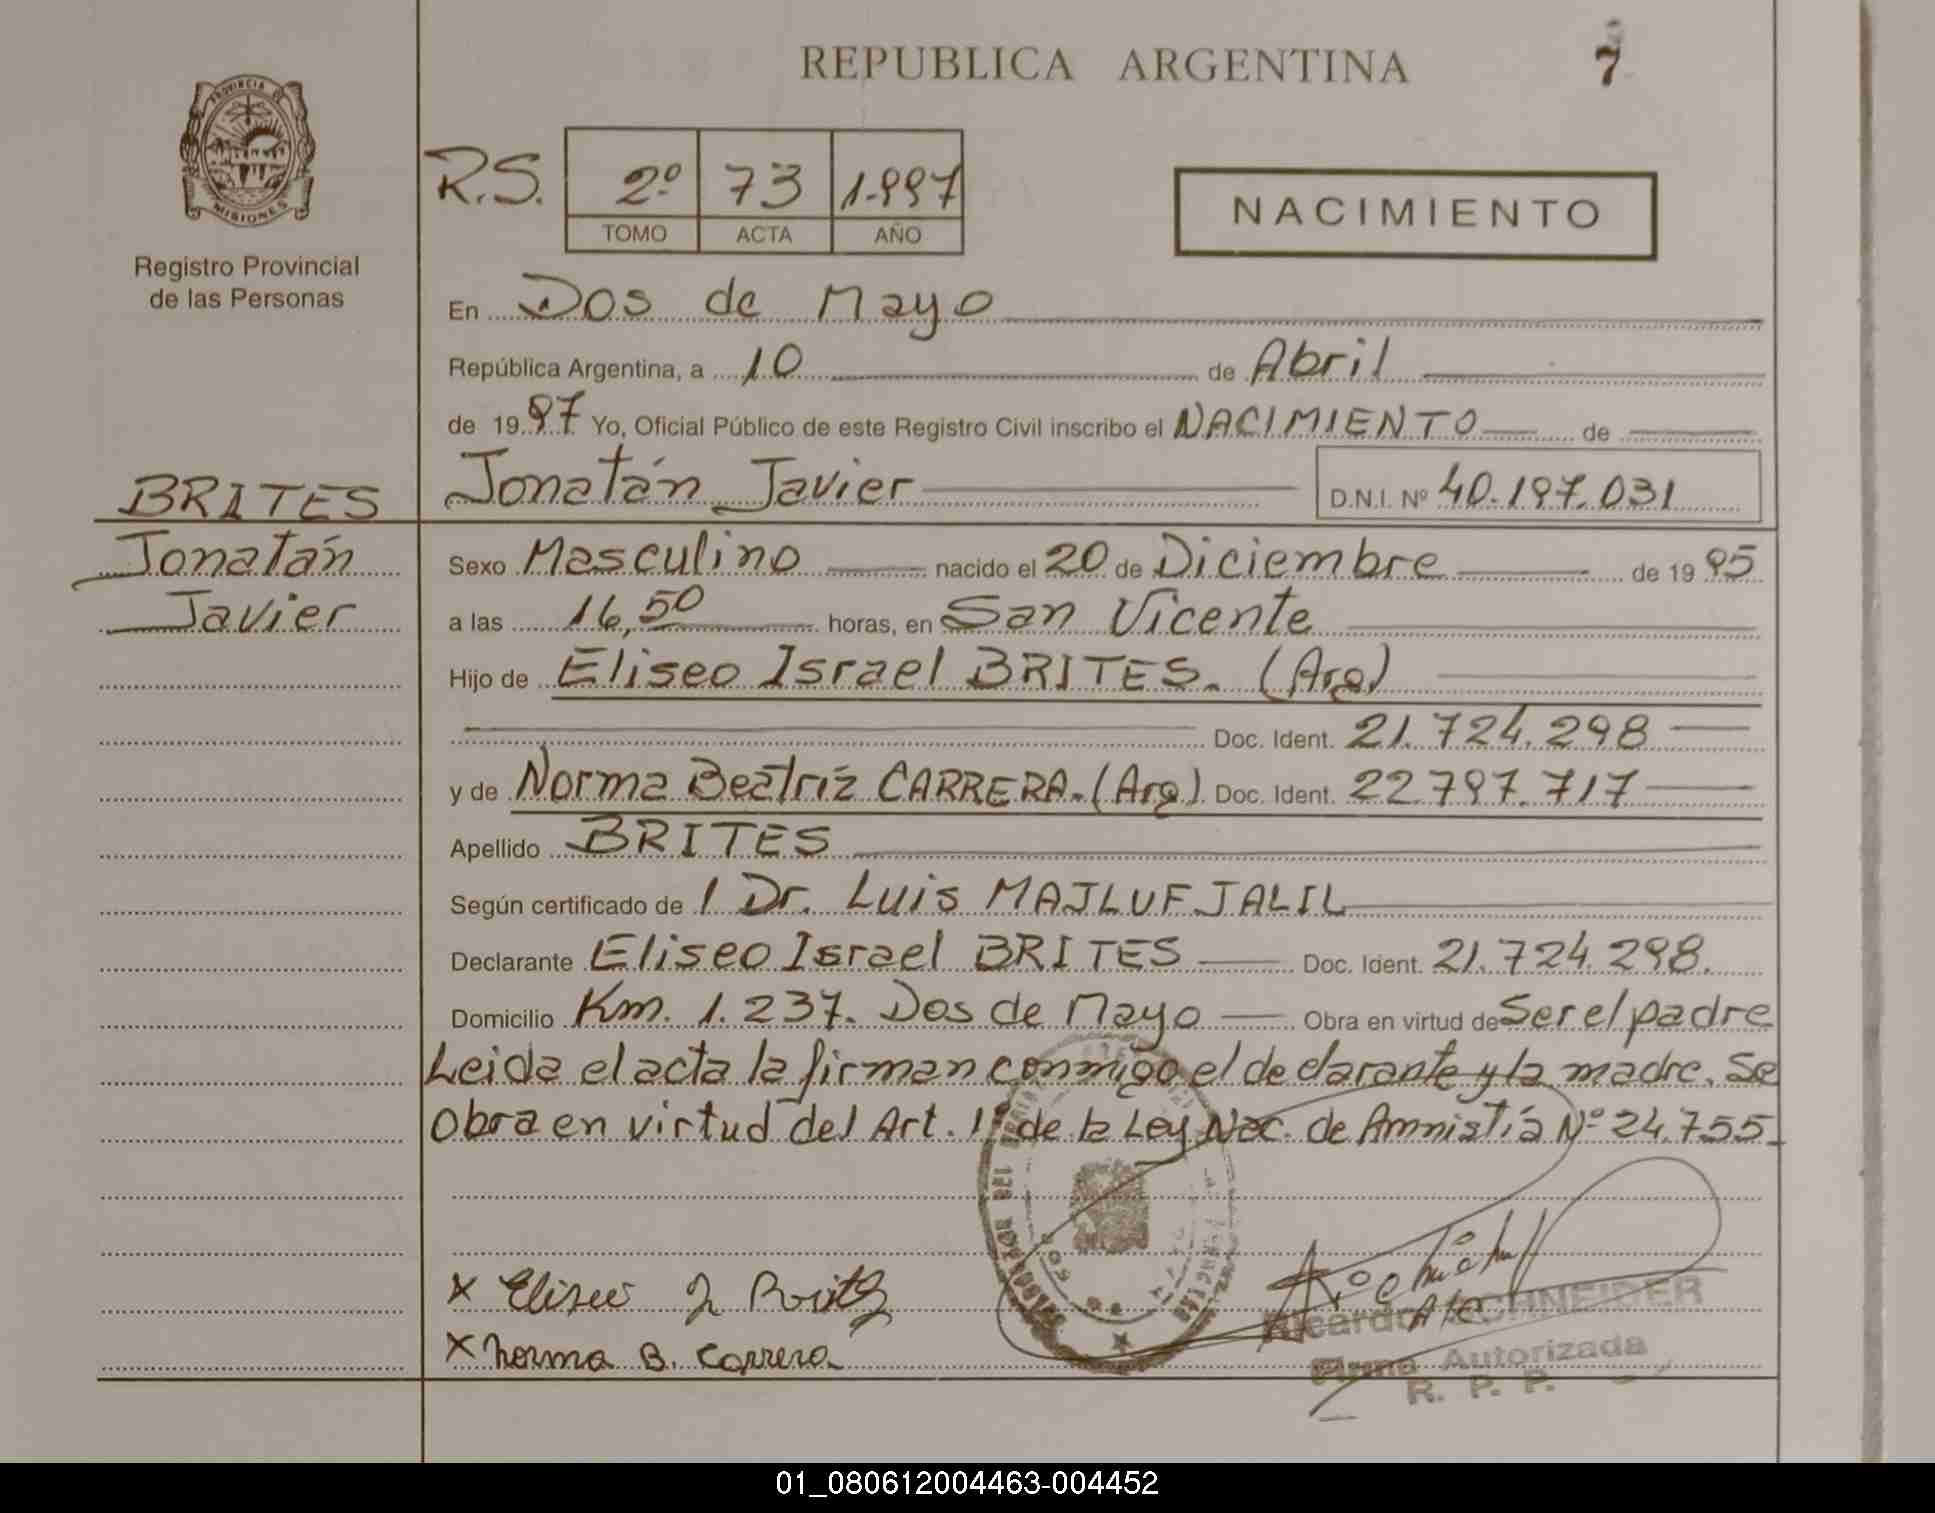 REPUBLICA ARGENTINA
7
PROVINCIA DE
MISIONES
Registro Provincial
de las Personas
R.S.
2º 73 1.997
TOMO ACTA AÑO
NACIMIENTO
En Dos de Mayo
República Argentina, a 10 de Abril
de 1997 Yo, Oficial Público de este Registro Civil inscribo el NACIMIENTO de
BRITES
Jonatán Javier D.N.I. Nº 40.197.031
Jonatán
Javier
Sexo Masculino nacido el 20 de Diciembre de 1995
a las 16,50 horas, en San Vicente
Hijo de Eliseo Israel BRITES. (Arg)
Doc. Ident. 21.724.298
y de Norma Beatríz CARRERA. (Arg). Doc. Ident. 22.797.717
Apellido BRITES
Según certificado de l Dr. Luis MAJLUF JALIL
Declarante Eliseo Israel BRITES Doc. Ident. 21.724.298.
Domicilio Km. 1.237. Dos de Mayo Obra en virtud de Ser el padre
Leida el acta la firman conmigo el declarante y la madre. Se
Obra en virtud del Art. 1º de la Ley Nac. de Amnistía Nº 24.755.
x Eliseo
x Norma B. Carrera
Ricardo SCHNEIDER
Firma Autorizada
R. P. P.
01_080612004463-004452